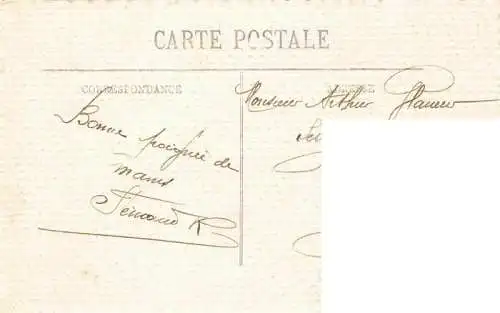 CARTE POSTALE
CORRESPONDANCE
ADRESSE
Bonne poignée de
mains
Fernand R
Monsieur Arthur